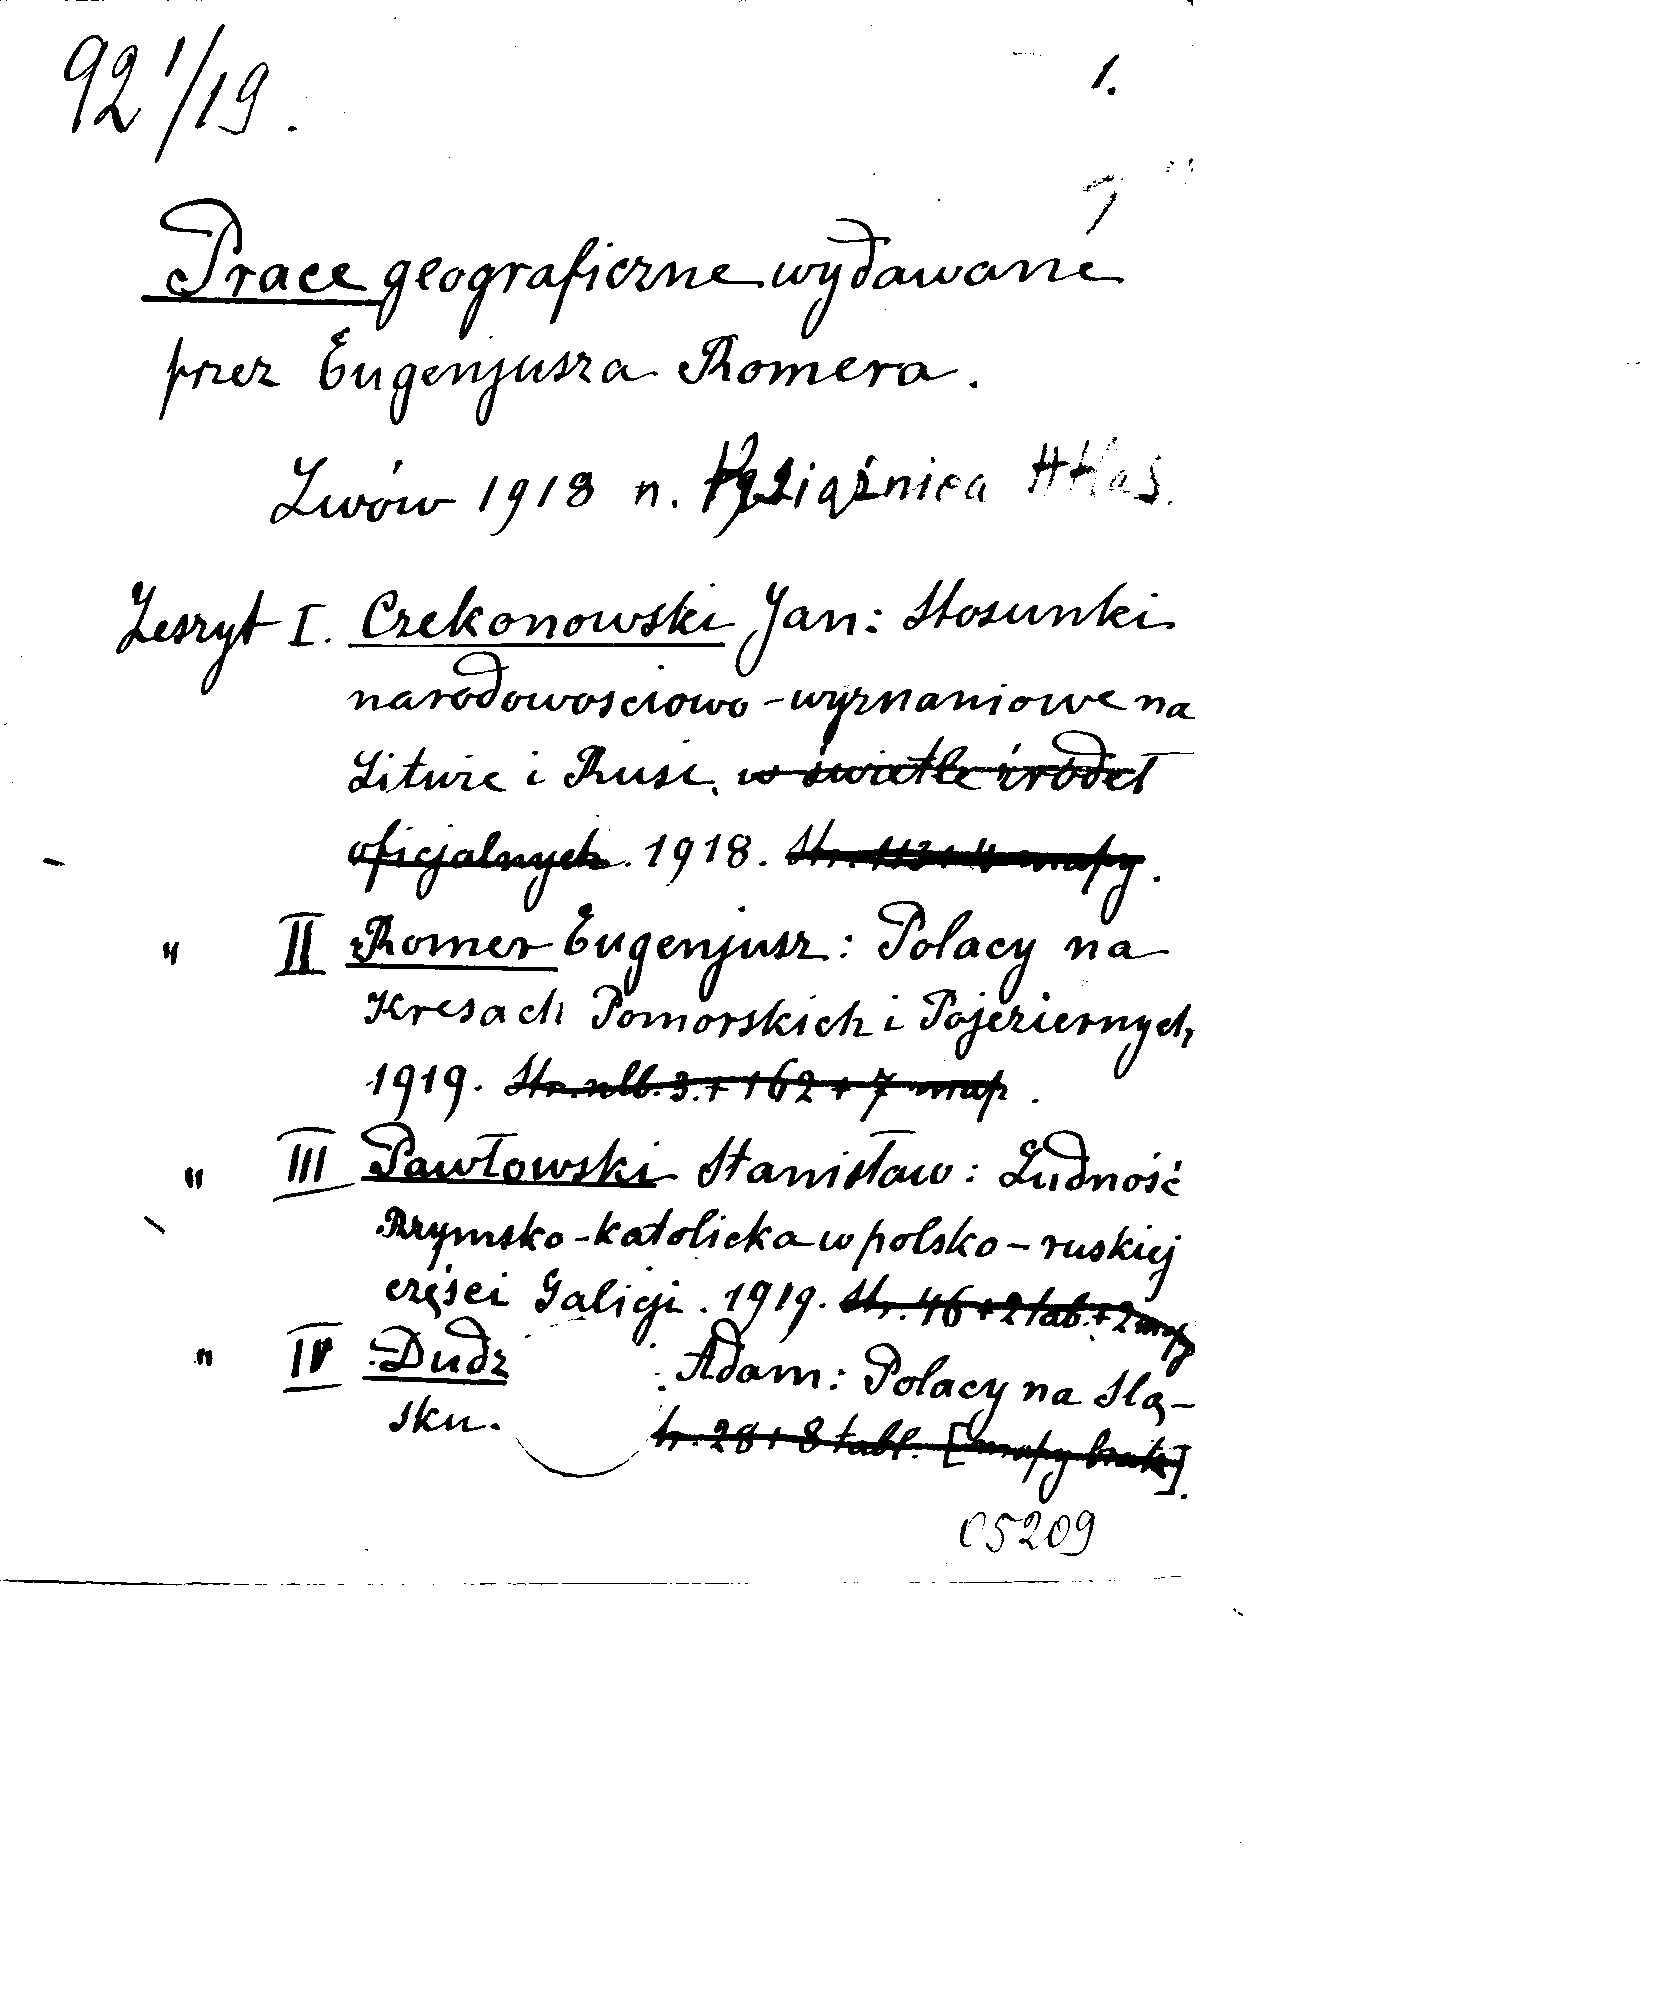 92 1/19.
1.
Prace geograficzne wydawane
przez Eugenjusza Romera.
Lwów 1918 n. Książnica Atlas.
Zeszyt I. Czekonowski Jan: Stosunki
narodowościowo-wyznaniowe na
Litwie i Rusi, w świetle źródeł
oficjalnych. 1918. Str. 113 + 4 mapy.
" II Romer Eugenjusz: Polacy na
Kresach Pomorskich i Pojeziernych,
1919. Str. nlb. 3. + 162 + 7 map.
" III Pawłowski Stanisław: Ludność
Rzymsko-katolicka w polsko-ruskiej
części Galicji. 1919. Str. 46 + 2 tab. + 2 mapy
" IV Dudz Adam: Polacy na Slą-
sku. tr. 28 + 8 tabl. [mapy brak].
C5209